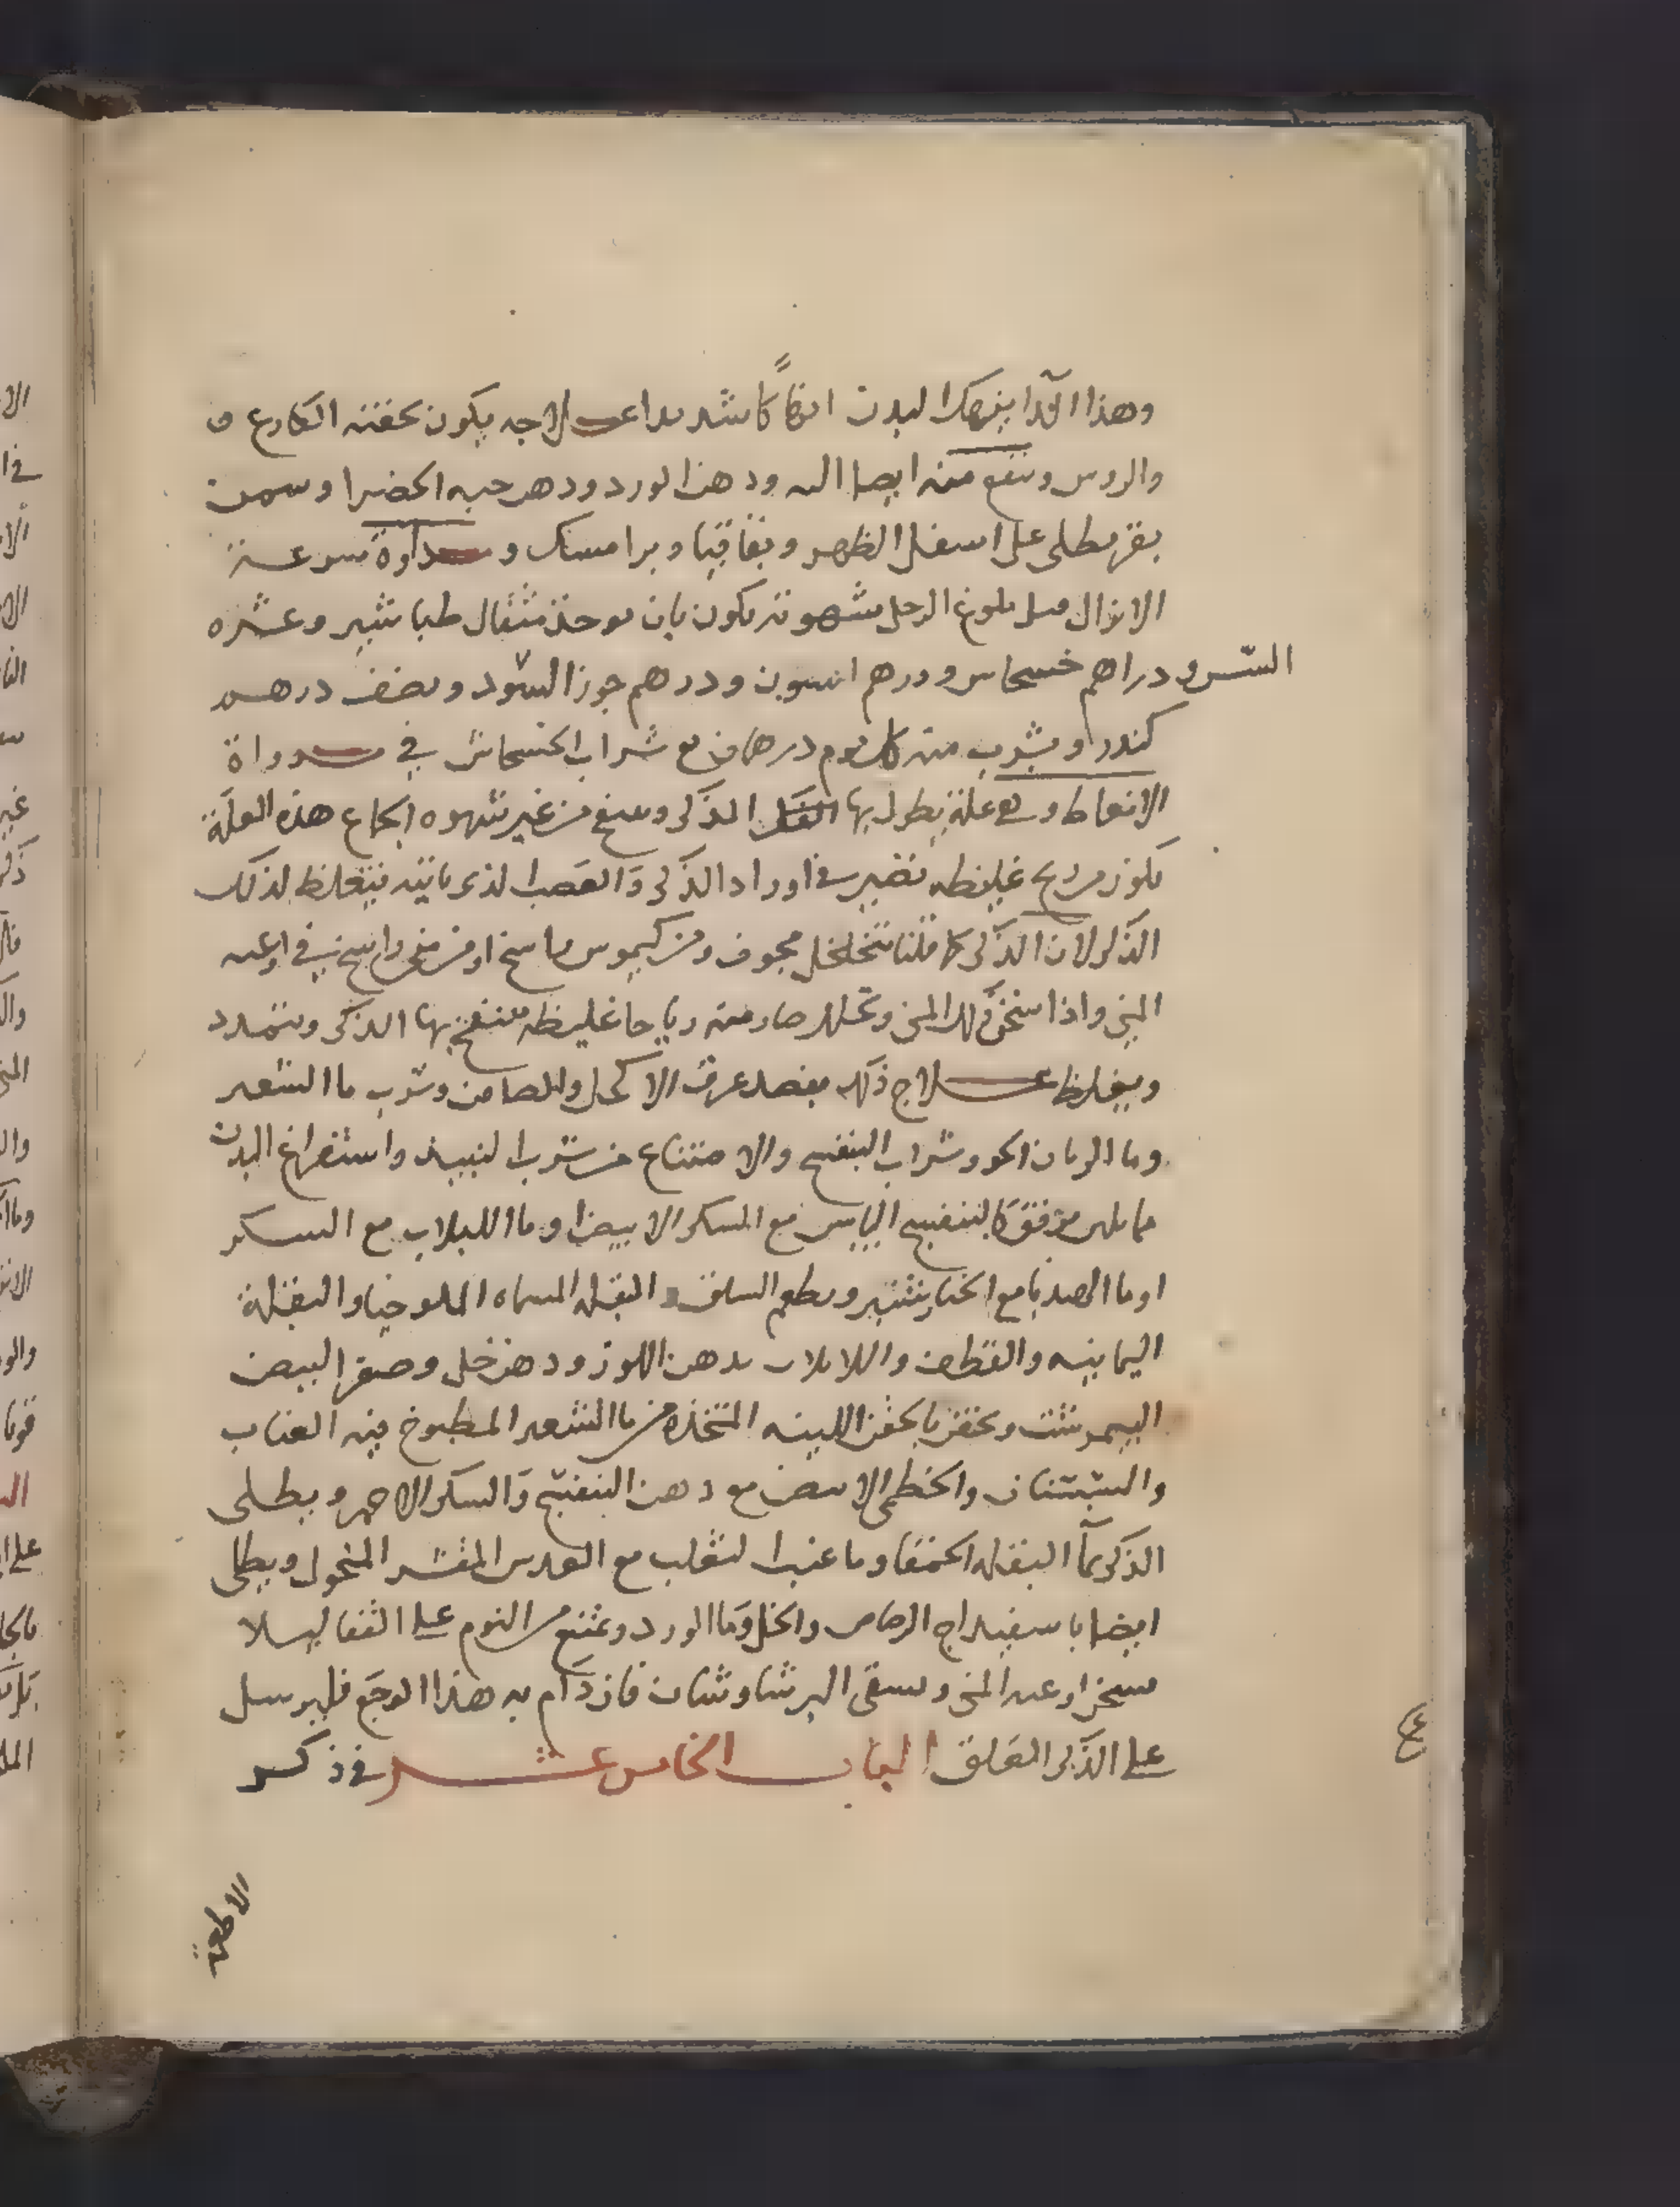 وهذا الدا ينهك البدن انهاكاً شديدا علاجه يكون بحقنة الكارع
والروس وينفع منه ايضا اليه ودهن الورد ودهن حبه الخضرا وسمن
بقر يطلى على اسفل الظهر وبقاقيا وبرامسك ومداوة سرعة
الانزال قبل بلوغ الرجل شهوته يكون بان يوخذ مثقال طباشير وعشره
دراهم خشخاش ودرهم انيسون ودرهم جوز السرو ونصف درهم
كندر ويشرب منه كل يوم درهمان مع شراب الخشخاش في مدوراة
الانعاظ وهي علة يطول بها الذكر وينتفخ من غير شهوه الجماع هذه العلة
تكون من ريح غليظه تصير في اوراد الذكر والعصب الذي ياتيه فيتغلظ لذلك
الذكر لان الذكر كما قلنا متخلخل مجوف ومن كيموس ساخن او من مني ساخن في اوعيه
المني واذا سخن ذلك المني وتحلل صار منه رياحا غليظه ينتفخ بها الذكر ويتمدد
ويغلظ علاج ذلك بفصد عرق الاكحل والصافن وشرب ما الشعير
وما الرمان الحلو وشراب البنفسج والامتناع من شرب النبيذ واستفراغ البدن
بما يلين برفق كالبنفسج اليابس مع السكر الابيض او ما اللبلاب مع السكر
او ما الهندبا مع الخيار شنبر ويطعم السلق والبقله المسماه الملوخيا والبقلة
اليمانيه والقطف واللبلاب بدهن اللوز ودهن خل وصفر البيض
النيمرشت ويحقن بالحقن اللينه المتخذه من ما الشعير المطبوخ فيه العناب
والسبستان والخطمي الابيض مع دهن البنفسج والسكر الاحمر ويطلى
الذكر بمآ البقله الحمقا وما عنب الثعلب مع العدس المقشر المنخول ويطلى
ايضا باسفيداج الرصاص والخل وما الورد ويمتنع من النوم على القفا ليلا
يسخن اوعيه المني ويسقى البرشاوشان فان دام به هذا الوجع فليرسل
على الذكر العلق الباب الخامس عشر في ذكر
الاطعمة